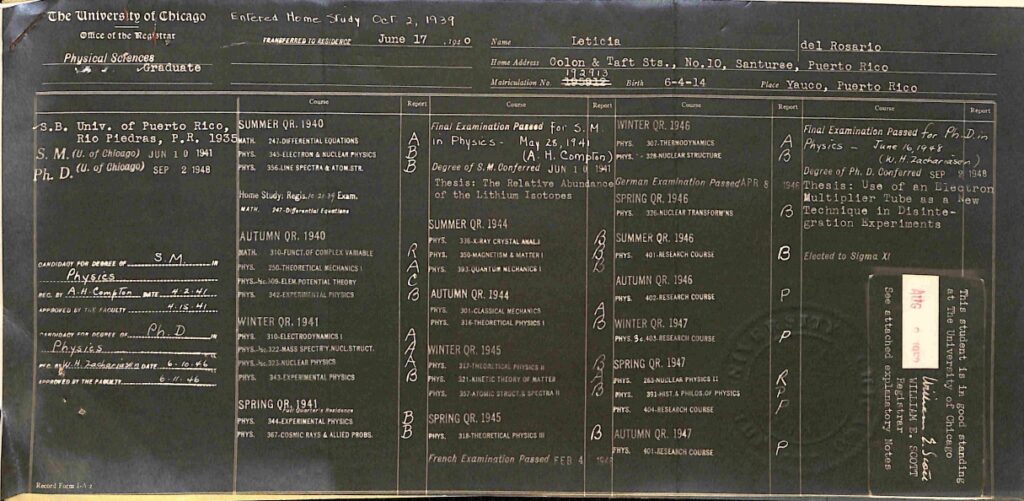 The University of Chicago
Office of the Registrar
Entered Home Study Oct 2, 1939
TRANSFERRED TO RESIDENCE June 17, 1940
Physical Sciences
Graduate
Name Leticia del Rosario
Home Address Colon & Taft Sts., No.10, Santurse, Puerto Rico
192913
Matriculation No. Birth 6-4-14 Place Yauco, Puerto Rico
Course Report Course Report Course Report Course Report
S.B. Univ. of Puerto Rico,
Rio Piedras, P.R. 1935
S. M. (U. of Chicago) JUN 10 1941
Ph. D. (U. of Chicago) SEP 2 1948
CANDIDACY FOR DEGREE OF S.M. IN
Physics
REC. BY A.H. Compton DATE 4-2-41
APPROVED BY THE FACULTY 4-15-41
CANDIDACY FOR DEGREE OF Ph.D IN
Physics
REC. BY W.H. Zachariasen DATE 6-10-46
APPROVED BY THE FACULTY 6-11-46
Record Form 1-A-2
SUMMER QR. 1940
MATH. 247-DIFFERENTIAL EQUATIONS A
PHYS. 345-ELECTRON & NUCLEAR PHYSICS B
PHYS. 356-LINE SPECTRA & ATOM.STR. B
Home Study: Regis. Exam.
MATH. 247-Differential Equations
AUTUMN QR. 1940
MATH. 310-FUNCT. OF COMPLEX VARIABLE R
PHYS. 250-THEORETICAL MECHANICS I A
PHYS. 309-ELEM.POTENTIAL THEORY C
PHYS. 342-EXPERIMENTAL PHYSICS B
WINTER QR. 1941
PHYS. 310-ELECTRODYNAMICS I A
PHYS. 322-MASS SPECTRY.NUCL.STRUCT. A
PHYS. 323-NUCLEAR PHYSICS A
PHYS. 343-EXPERIMENTAL PHYSICS B
SPRING QR. 1941
Full Quarter's Residence
PHYS. 344-EXPERIMENTAL PHYSICS B
PHYS. 367-COSMIC RAYS & ALLIED PROBS. B
Final Examination Passed for S.M.
in Physics - May 28, 1941
(A. H. Compton)
Degree of S.M. Conferred JUN 10 1941
Thesis: The Relative Abundance
of the Lithium Isotopes
SUMMER 1944
PHYS. 336-X-RAY CRYSTAL ANAL. B
PHYS. 350-MAGNETISM & MATTER I B
PHYS. 393-QUANTUM MECHANICS I B
AUTUMN QR. 1944
PHYS. 301-CLASSICAL MECHANICS A
PHYS. 316-THEORETICAL PHYSICS I B
WINTER QR. 1945
PHYS. 317-THEORETICAL PHYSICS II B
PHYS. 321-KINETIC THEORY OF MATTER A
PHYS. 357-ATOMIC STRUCT. & SPECTRA II B
SPRING QR. 1945
PHYS. 318-THEORETICAL PHYSICS III B
French Examination Passed FEB 4
WINTER QR. 1946
PHYS. 307-THERMODYNAMICS A
PHYS. 328-NUCLEAR STRUCTURE B
German Examination Passed APR 8 1946
SPRING QR. 1946
PHYS. 326-NUCLEAR TRANSFORM'NS B
SUMMER QR. 1946
PHYS. 401-RESEARCH COURSE B
AUTUMN QR. 1946
PHYS. 402-RESEARCH COURSE P
WINTER QR. 1947
PHYS. 403-RESEARCH COURSE P
SPRING QR. 1947
PHYS. 263-NUCLEAR PHYSICS II R
PHYS. 391-HIST. & PHILOS. OF PHYSICS P
PHYS. 404-RESEARCH COURSE P
AUTUMN QR. 1947
PHYS. 401-RESEARCH COURSE P
Final Examination Passed for Ph.D. in
Physics - June 16, 1948
(W. H. Zachariasen)
Degree of Ph. D. Conferred SEP 2 1948
Thesis: Use of an Electron
Multiplier Tube as a New
Technique in Disinte-
gration Experiments
Elected to Sigma XI
This student is in good standing
at The University of Chicago
William E Scott
WILLIAM E. SCOTT
Registrar
See attached explanatory Notes
AUG